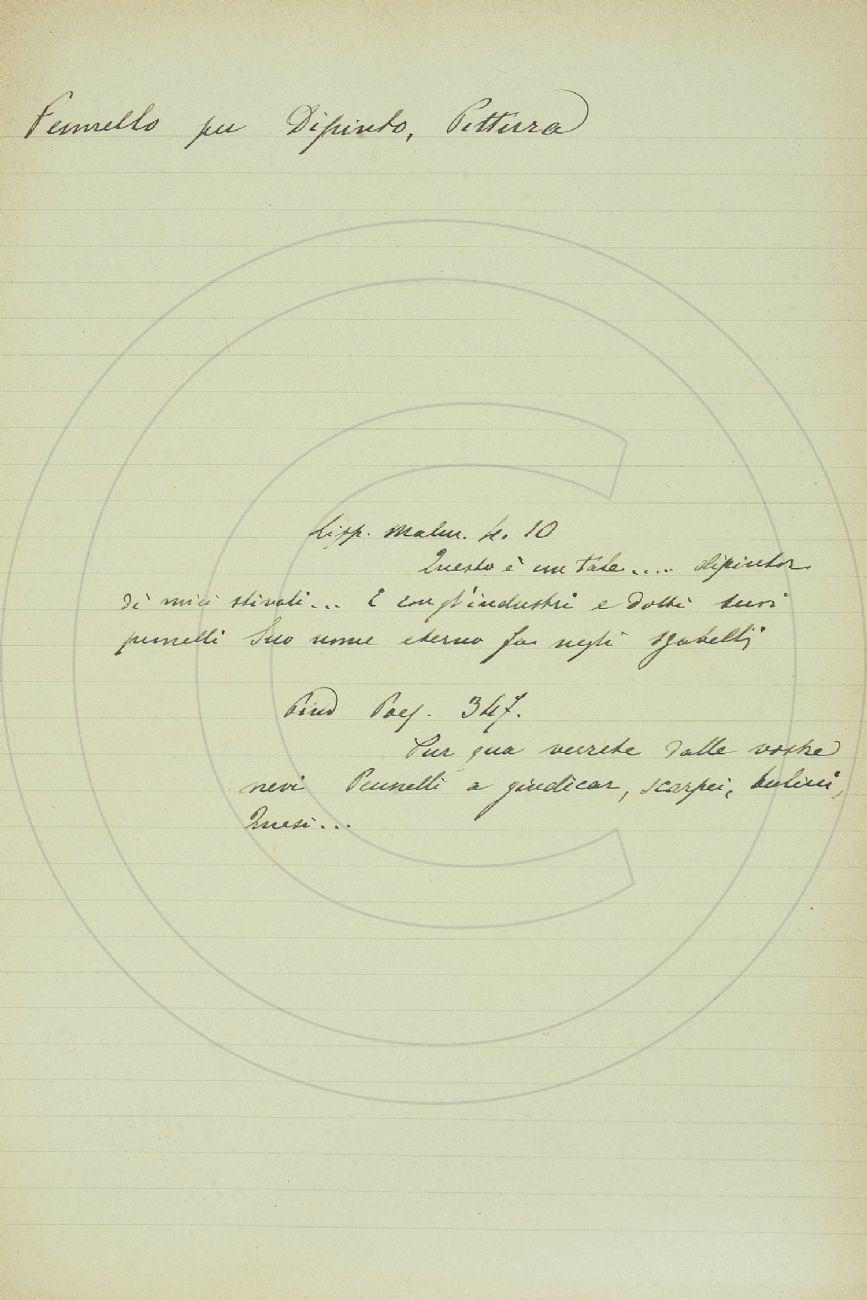 Pennello per Dipinto, Pittura
Lipp. Malm. 4. 10
Questo è un tale.... dipintor
di miei stivali... E con gl'industri e dotti suoi
pennelli Suo nome eterno fa negli sgabelli
Pind Poeg. 347.
Pur qua verrete dalle vostre
nevi Pennelli a giudicar, scarpei, bulini,